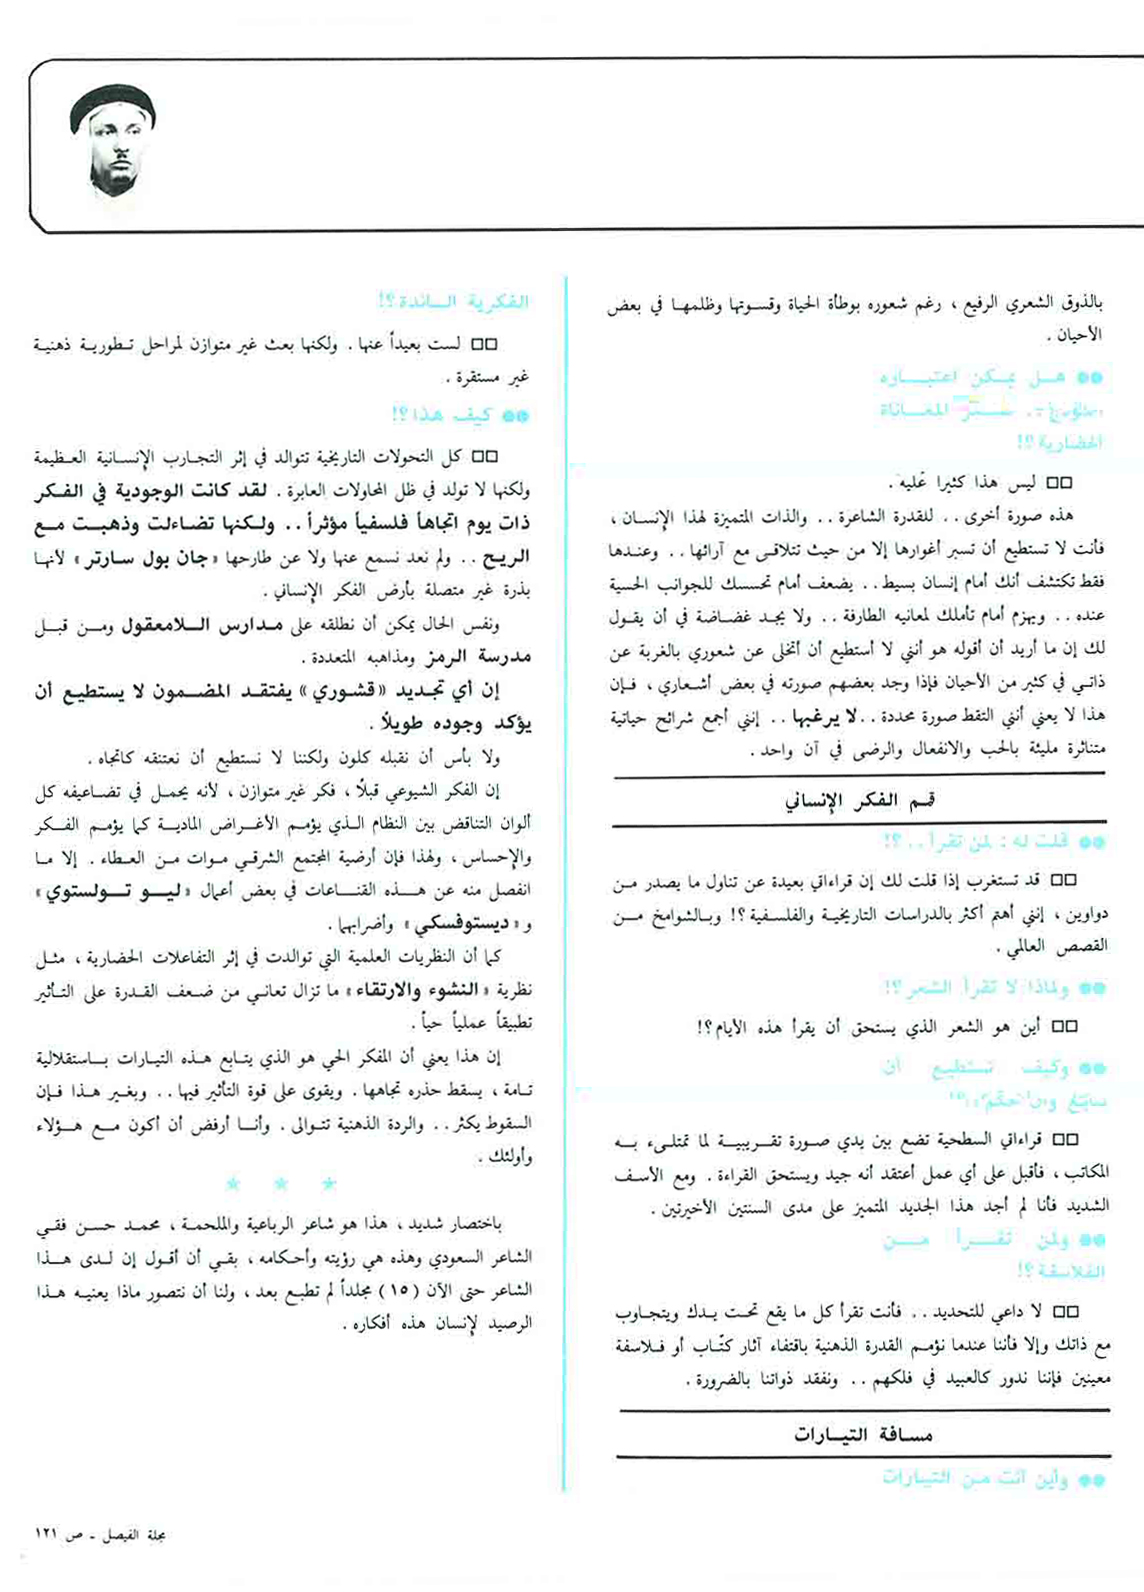 بالذوق الشعري الرفيع ، رغم شعوره بوطأة الحياة وقسوتها وظلمها في بعض
الأحيان .
●● هل يمكن اعتباره
المعاناة
الحضارية؟!
□□ ليس هذا كثيرا عليه .
هذه صورة أخرى . . للقدرة الشاعرة . . والذات المتميزة لهذا الإنسان ،
فأنت لا تستطيع أن تسبر أغوارها إلا من حيث تتلاقى مع آرائها . . وعندها
فقط تكتشف أنك أمام إنسان بسيط . . يضعف أمام تحسسك للجوانب الحسية
عنده . . ويهزم أمام تأملك لمعانيه الطارفة . . ولا يجد غضاضة في أن يقول
لك إن ما أريد أن أقوله هو أنني لا أستطيع أن أتخلى عن شعوري بالغربة عن
ذاتي في كثير من الأحيان فإذا وجد بعضهم صورته في بعض أشعاري ، فإن
هذا لا يعني أنني التقط صورة محددة . . لا يرغبها . . إنني أجمع شرائح حياتية
متناثرة مليئة بالحب والانفعال والرضى في آن واحد .
قمم الفكر الإنساني
●● قلت له : لمن تقرأ . . ؟!
□□ قد تستغرب إذا قلت لك إن قراءاتي بعيدة عن تناول ما يصدر من
دواوين ، إنني أهتم أكثر بالدراسات التاريخية والفلسفية ؟! وبالشوامخ من
القصص العالمي .
●● ولماذا لا تقرأ الشعر؟!
□□ أين هو الشعر الذي يستحق أن يقرأ هذه الأيام؟!
●● وكيف تستطيع أن
□□ قراءاتي السطحية تضع بين يدي صورة تقريبية لما تمتلىء به
المكاتب ، فأقبل على أي عمل أعتقد أنه جيد ويستحق القراءة . ومع الأسف
الشديد فأنا لم أجد هذا الجديد المتميز على مدى السنتين الأخيرتين .
●● ولمن تقرأ من
الفلاسفة؟!
□□ لا داعي للتحديد . . فأنت تقرأ كل ما يقع تحت يدك ويتجاوب
مع ذاتك وإلا فأننا عندما نؤمم القدرة الذهنية باقتفاء آثار كتّاب أو فلاسفة
معينين فإننا ندور كالعبيد في فلكهم . . ونفقد ذواتنا بالضرورة .
مسافة التيارات
●● وأين أنت من التيارات
الفكرية السائدة؟!
□□ لست بعيداً عنها . ولكنها بعث غير متوازن لمراحل تطورية ذهنية
غير مستقرة .
●● كيف هذا؟!
□□ كل التحولات التاريخية تتوالد في إثر التجارب الإنسانية العظيمة
ولكنها لا تولد في ظل المحاولات العابرة . لقد كانت الوجودية في الفكر
ذات يوم اتجاهاً فلسفياً مؤثراً . . ولكنها تضاءلت وذهبت مع
الريح . . ولم نعد نسمع عنها ولا عن طارحها «جان بول سارتر» لأنها
بذرة غير متصلة بأرض الفكر الإنساني .
ونفس الحال يمكن أن نطلقه على مدارس اللامعقول ومن قبل
مدرسة الرمز ومذاهبه المتعددة .
إن أي تجديد «قشوري» يفتقد المضمون لا يستطيع أن
يؤكد وجوده طويلاً .
ولا بأس أن نقبله كلون ولكننا لا نستطيع أن نعتنقه كاتجاه .
إن الفكر الشيوعي قبلاً ، فكر غير متوازن ، لأنه يحمل في تضاعيفه كل
ألوان التناقض بين النظام الذي يؤمم الأغراض المادية كما يؤمم الفكر
والإحساس ، ولهذا فإن أرضية المجتمع الشرقي موات من العطاء . إلا ما
انفصل منه عن هذه القناعات في بعض أعمال «ليو تولستوي»
و«ديستوفسكي» وأضرابهما .
كما أن النظريات العلمية التي توالدت في إثر التفاعلات الحضارية ، مثل
نظرية «النشوء والارتقاء» ما تزال تعاني من ضعف القدرة على التأثير
تطبيقاً عملياً حياً .
إن هذا يعني أن المفكر الحي هو الذي يتابع هذه التيارات باستقلالية
تامة ، يسقط حذره تجاهها . ويقوى على قوة التأثير فيها . . وبغير هذا فإن
السقوط يكثر . . والردة الذهنية تتوالى . وأنا أرفض أن أكون مع هؤلاء
وأولئك .
* * *
باختصار شديد ، هذا هو شاعر الرباعية والملحمة ، محمد حسن فقي
الشاعر السعودي وهذه هي رؤيته وأحكامه ، بقي أن أقول إن لدى هذا
الشاعر حتى الآن (١٥) مجلداً لم تطبع بعد ، ولنا أن نتصور ماذا يعنيه هذا
الرصيد لإنسان هذه أفكاره .
مجلة الفيصل ـ ص ١٢١